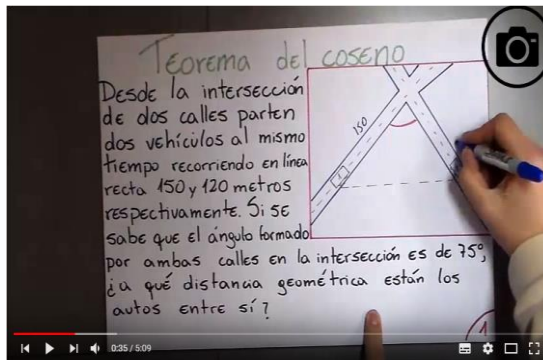 Teorema del coseno
Desde la intersección
de dos calles parten
dos vehículos al mismo
tiempo recorriendo en línea
recta 150 y 120 metros
respectivamente. Si se
sabe que el ángulo formado
por ambas calles en la intersección es de 75º,
¿a qué distancia geométrica están los
autos entre sí?
150
1
1
0:35 / 5:09